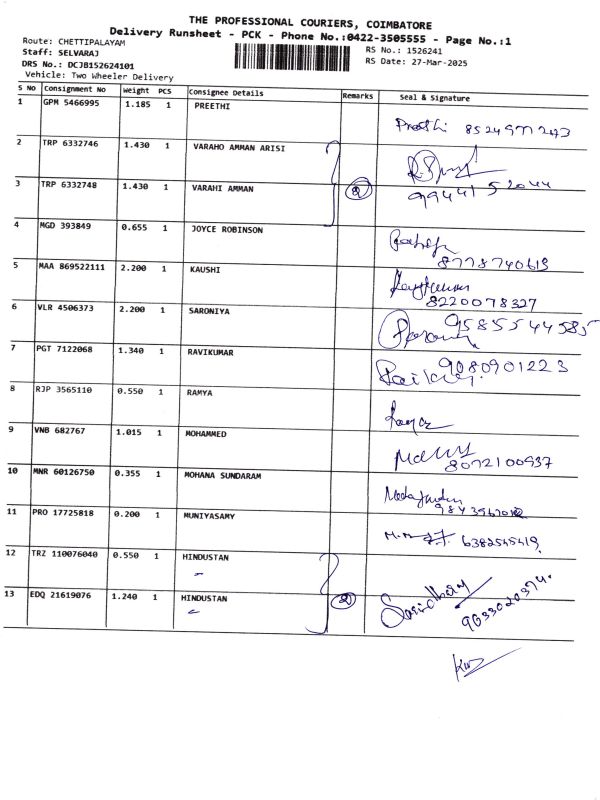 THE PROFESSIONAL COURIERS, COIMBATORE
Delivery Runsheet - PCK - Phone No.:0422-3505555 - Page No.:1
Route: CHETTIPALAYAM
RS No.: 1526241
Staff: SELVARAJ
RS Date: 27-Mar-2025
DRS No.: DCJB152624101
Vehicle: Two Wheeler Delivery
S No Consignment No Weight PCS Consignee Details Remarks Seal & Signature
1 GPM 5466995 1.185 1 PREETHI
Preethi
2 TRP 6332746 1.430 1 VARAHO AMMAN ARISI
3 TRP 6332748 1.430 1 VARAHI AMMAN 2 9944152044
4 MGD 393849 0.655 1 JOYCE ROBINSON
8778740613
5 MAA 869522111 2.200 1 KAUSHI
8220078327
6 VLR 4506373 2.200 1 SARONIYA 9585544585
7 PGT 7122068 1.340 1 RAVIKUMAR 9080901223
8 RJP 3565110 0.550 1 RAMYA
9 VNB 682767 1.015 1 MOHAMMED
8072100937
10 MNR 60126750 0.355 1 MOHANA SUNDARAM
11 PRO 17725818 0.200 1 MUNIYASAMY
6382545419
12 TRZ 110076040 0.550 1 HINDUSTAN
13 EDQ 21619076 1.240 1 HINDUSTAN 2 9633020374